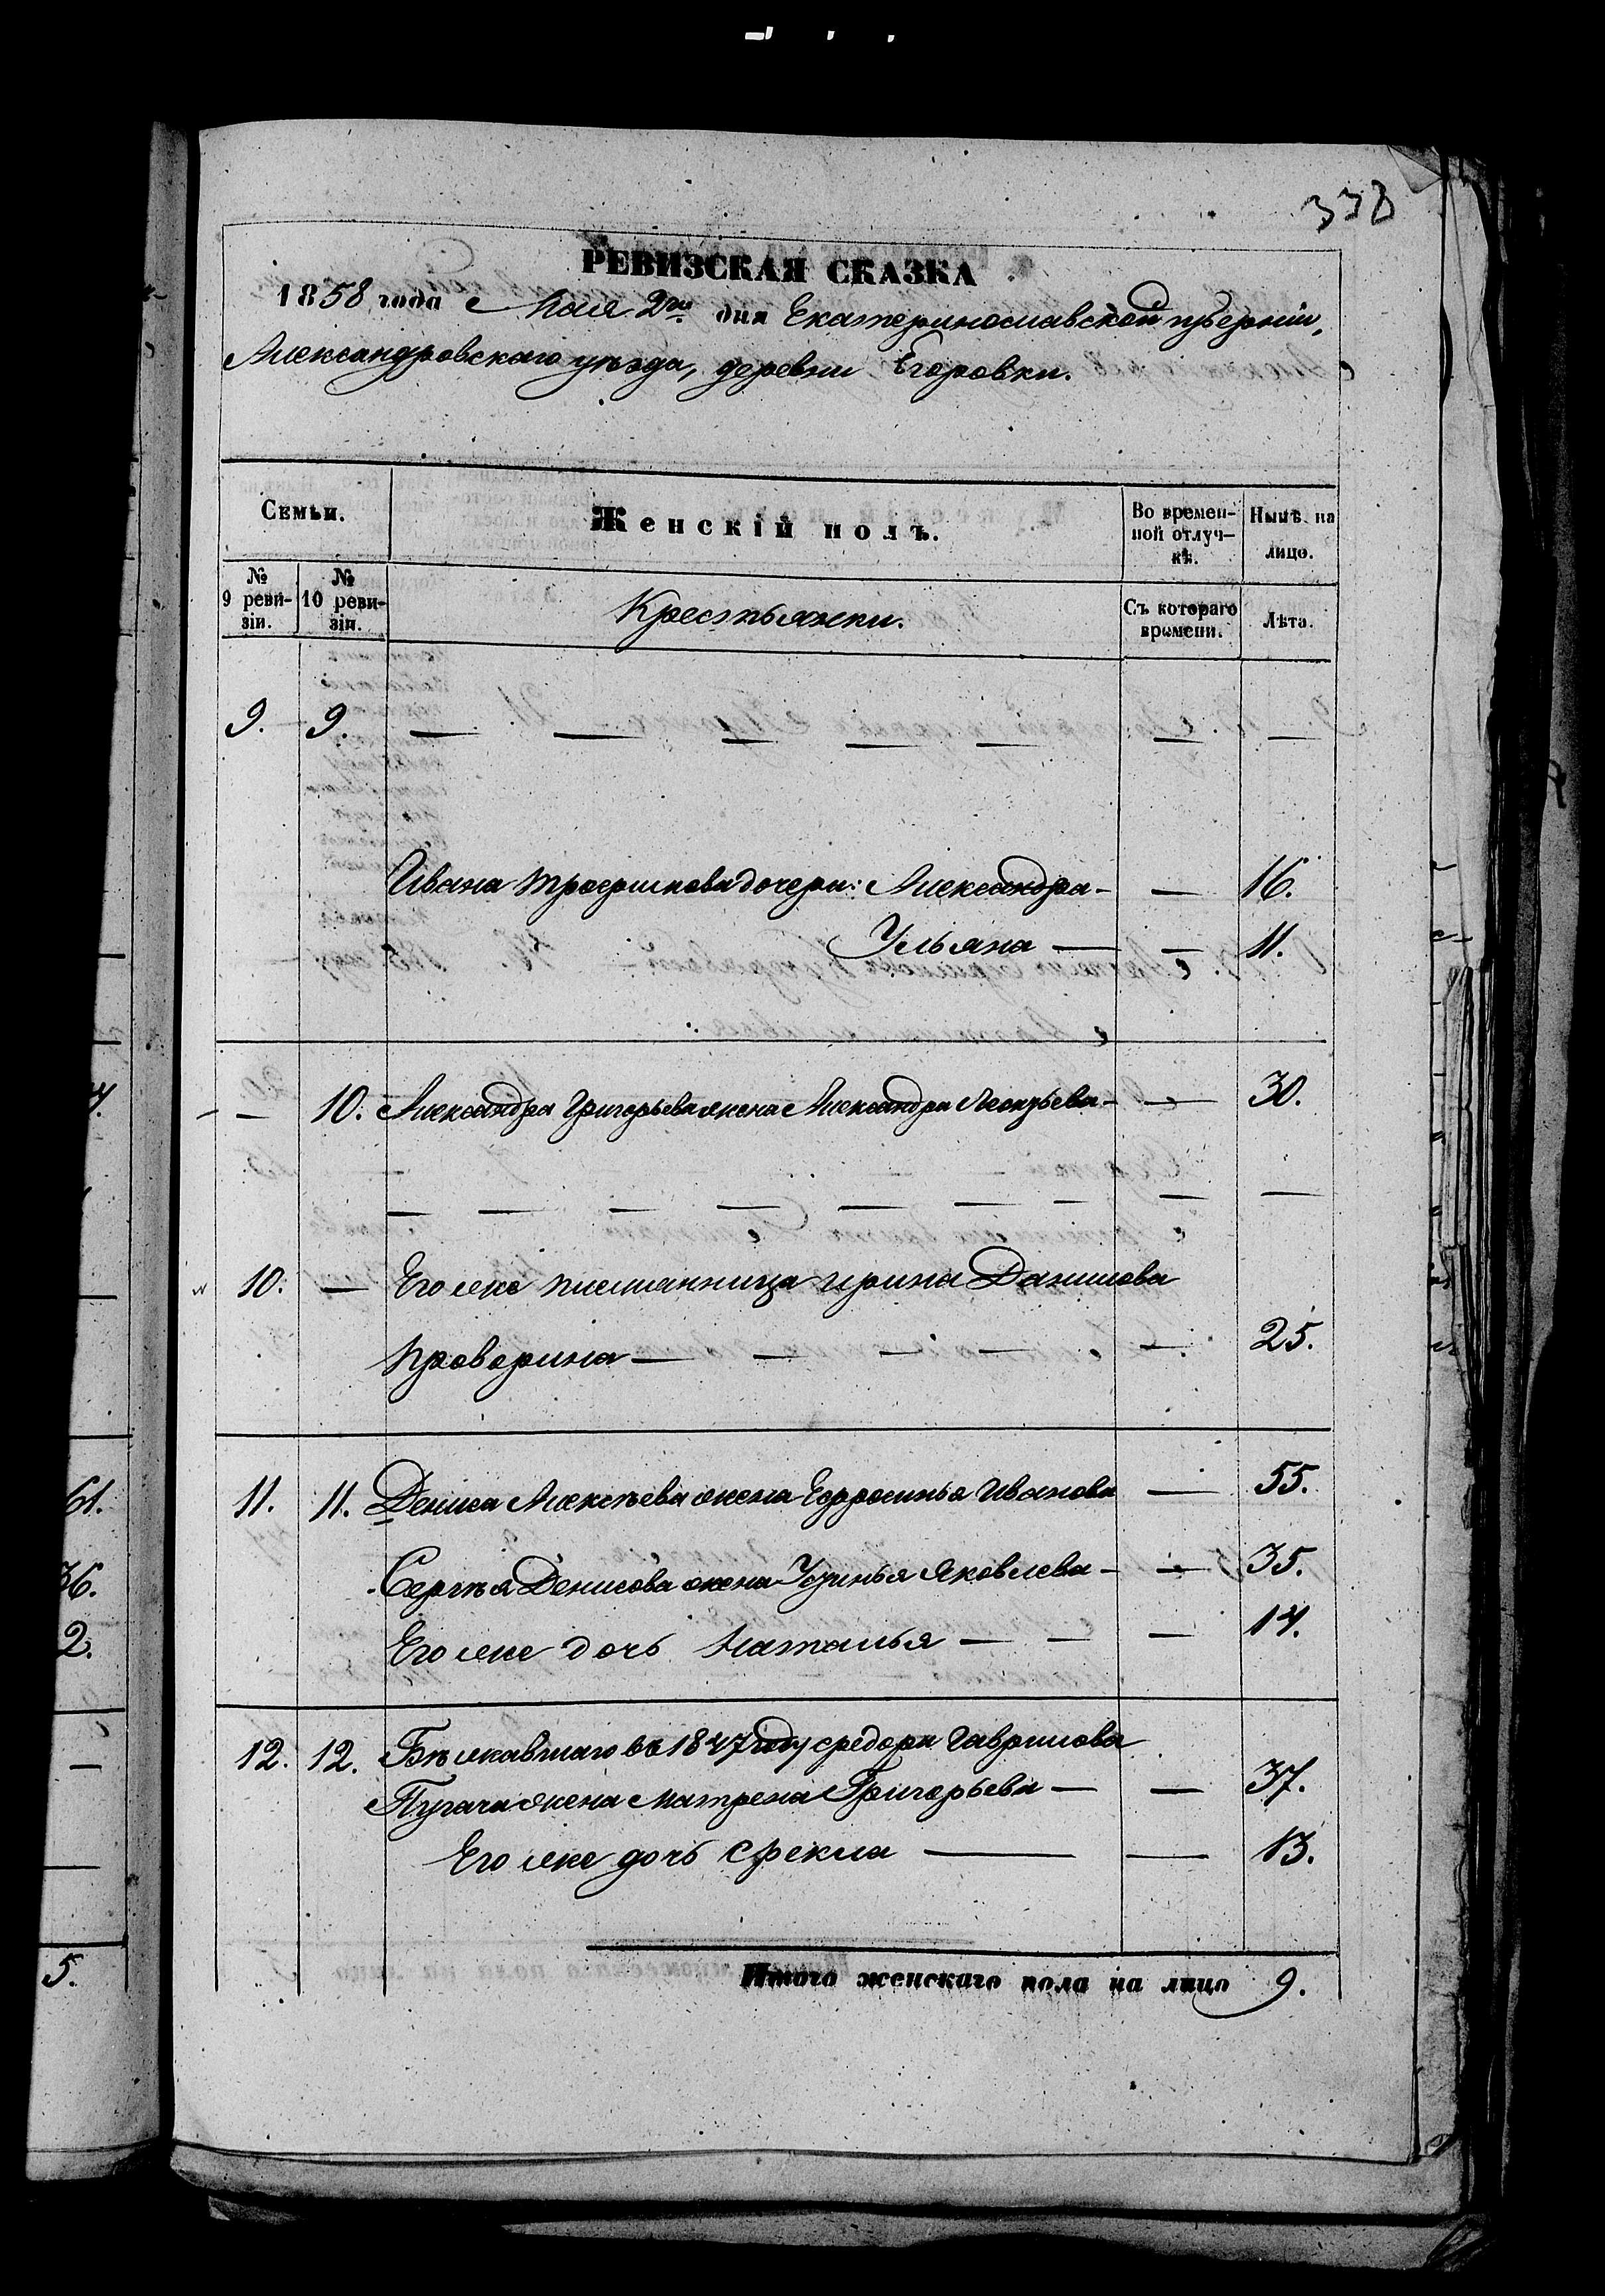 338
РЕВИЗСКАЯ СКАЗКА
1858 года Мая 2го дня Екатеринославской губернiи,
Александровскаго уѣзда, деревни Егоровки.
Семьи. Женскiй полъ. Во времен- Нынѣ на
ной отлуч- лицо.
кѣ.
№ №
9 реви- 10 реви- Крестьянки. Съ котораго Лѣта.
зiи. зiи. времени.
9. 9. — — — — — — —
Ивана Трофимова дочери: Александра — — 16.
Ульяна — — 11.
— 10. Александра Григорьева жена Александра Леонтьева — — 30.
— — — — — — — — —
10. — Его же племянница Ирина Данилова
Проворина — — — — — 25.
11. 11. Дениса Алексѣева жена Ефросинья Иванова — 55.
Сергѣя Денисова жена Устинья Яковлева — — 35.
Его же дочь Наталья — — — 14.
12. 12. Бѣжавшаго въ 1847 году Федора Гаврилова
Пугача жена Матрена Григорьева — — 37.
Его же дочь Фекла — — 13.
Итого женскаго пола на лицо 9.
61.
36.
2.
5.